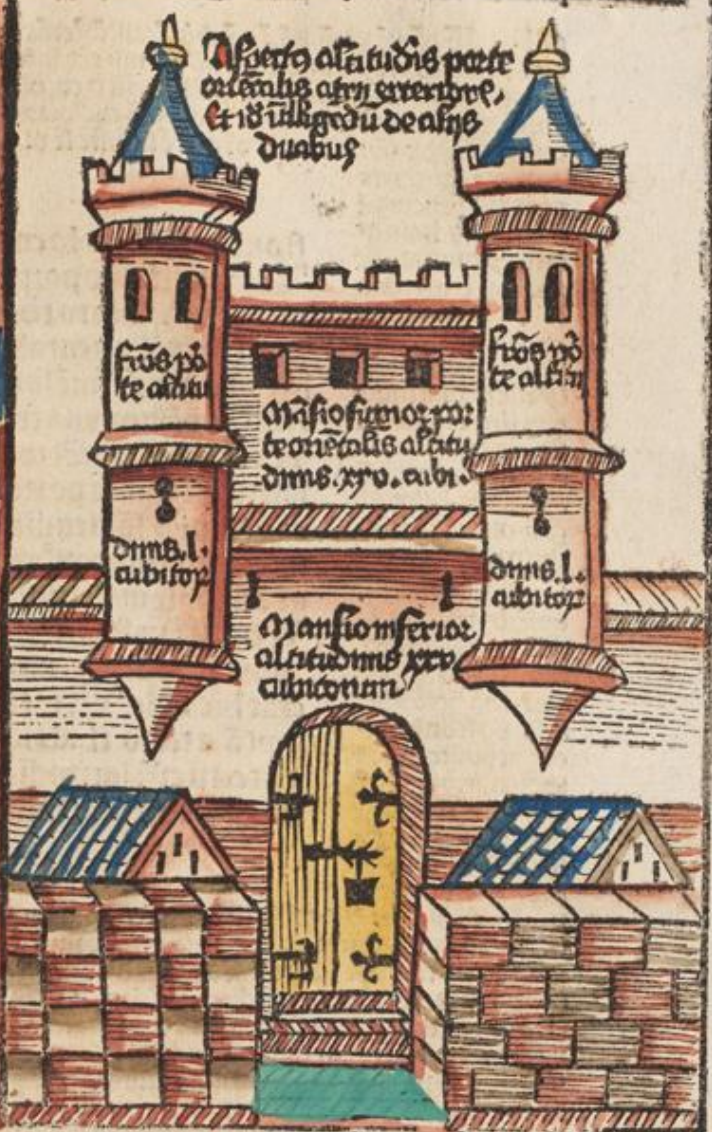 Aspectꝰ altitudīs porte
oriētalis atrij exteriorꝭ,
Et id ītelligēdū de alijs
duabus
frōs por
te altitu
dinis. l.
cubitoꝝ
Māsio supior por
te oriētalis altitu
dinis. xxv. cubi.
frōs por
te altitu
dinis. l.
cubitoꝝ
Mansio inferior
altitudinis xxv
cubitorum